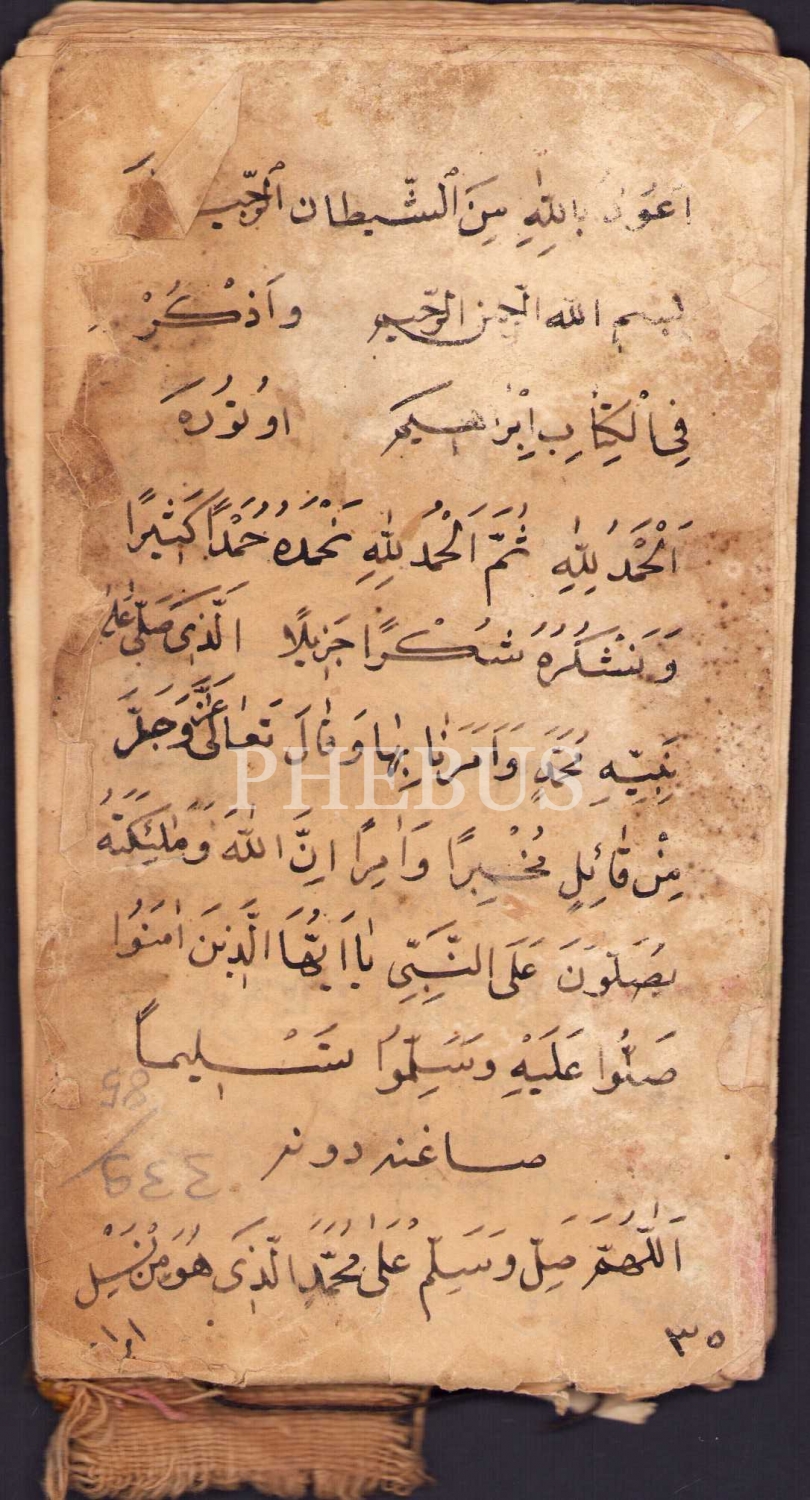 اَعُوذُ بِاللّٰهِ مِنَ الشَّيطان الرَّجيم
بسم الله الرحمن الرّحيم وَاَذْكُرْ
فِى الْكِتَابِ اِبْرَاهيم اوتوره
اَلْحَمْدُ لِلّٰهِ ثُمَّ اَلْحَمْدُ لِلّٰهِ نَحْمَدُهُ حَمْدًا كَثيرًا
وَنَشْكُرُهُ شُكْرًا جَزِيلًا الَّذِى صَلَّى عَلٰى
نَبِيِّهِ مُحَمَّدٍ وَاَمَرَنَا بِهَا وَقَالَ تَعَالٰى عَزَّ وَجَلَّ
مِنْ قَائِلٍ مُخْبِرًا وَاٰمِرًا اِنَّ اللّٰهَ وَمَلٰئِكَتَهُ
يُصَلّوُنَ عَلَى النَّبِىِّ يَا اَيُّهَا الَّذِينَ اٰمَنُوا
صَلُّوا عَلَيْهِ وَسَلِّمُوا تَسْلِيماً
صاغنه دونر
اَللّٰهُمَّ صَلِّ وَسَلِّمْ عَلٰى مُحَمَّدٍ الَّذِى هُوَ مِنْ نَسْلِ
٣٥
PHEBUS